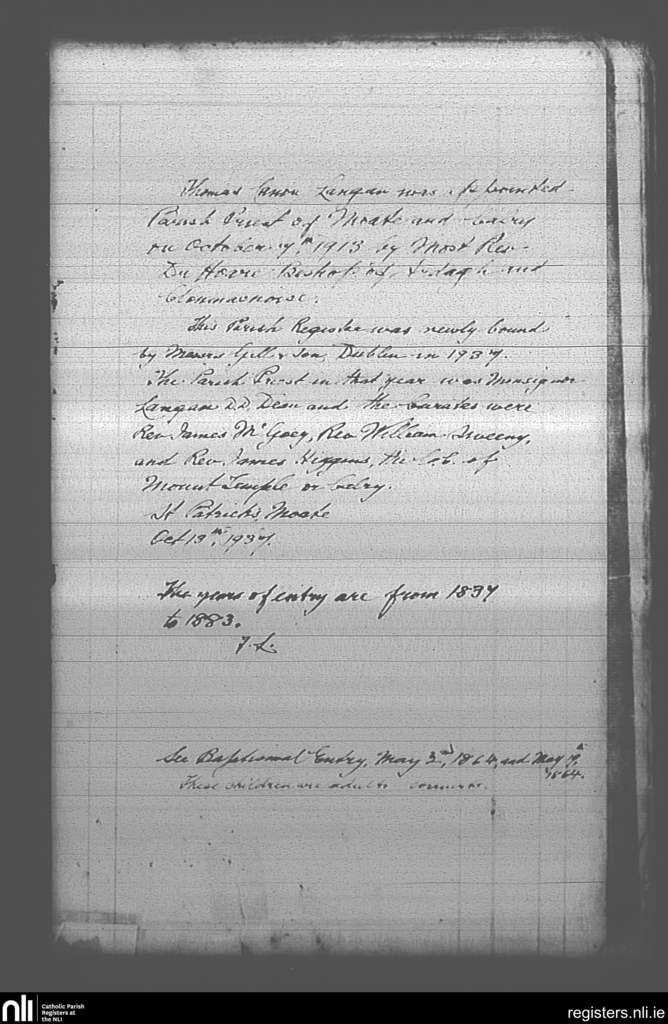 Thomas Canon Langan was appointed
Parish Priest of Moate and
on October 7th, 1913 by Most Rev.
Dr Hoare Bishop of Ardagh and
Clonmacnoise.
This Parish Register was newly bound
by Messrs Gill & Son, Dublin in 1937.
The Parish Priest in that year was Monsignor
Langan D.D. Dean and the Curates were
Rev. James McGoey, Rev William Sweeny,
and Rev. James Higgins, the C.C. of
Mount Temple or
St Patrick's, Moate
Oct 13th, 1937.
The years of entry are from 1837
to 1883.
T.L.
See Baptismal Entry, May 3rd, 1864, and May 7th,
1864.
These children are adults converts.
nli Catholic Parish
Registers at
the NLI
registers.nli.ie